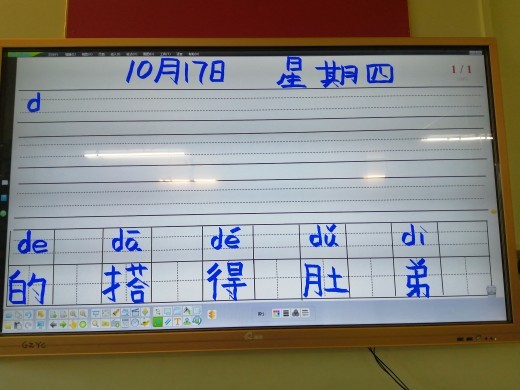 10月17日 星期四
1/1
d
de dā dé dǔ dì
的 搭 得 肚 弟
GZYC